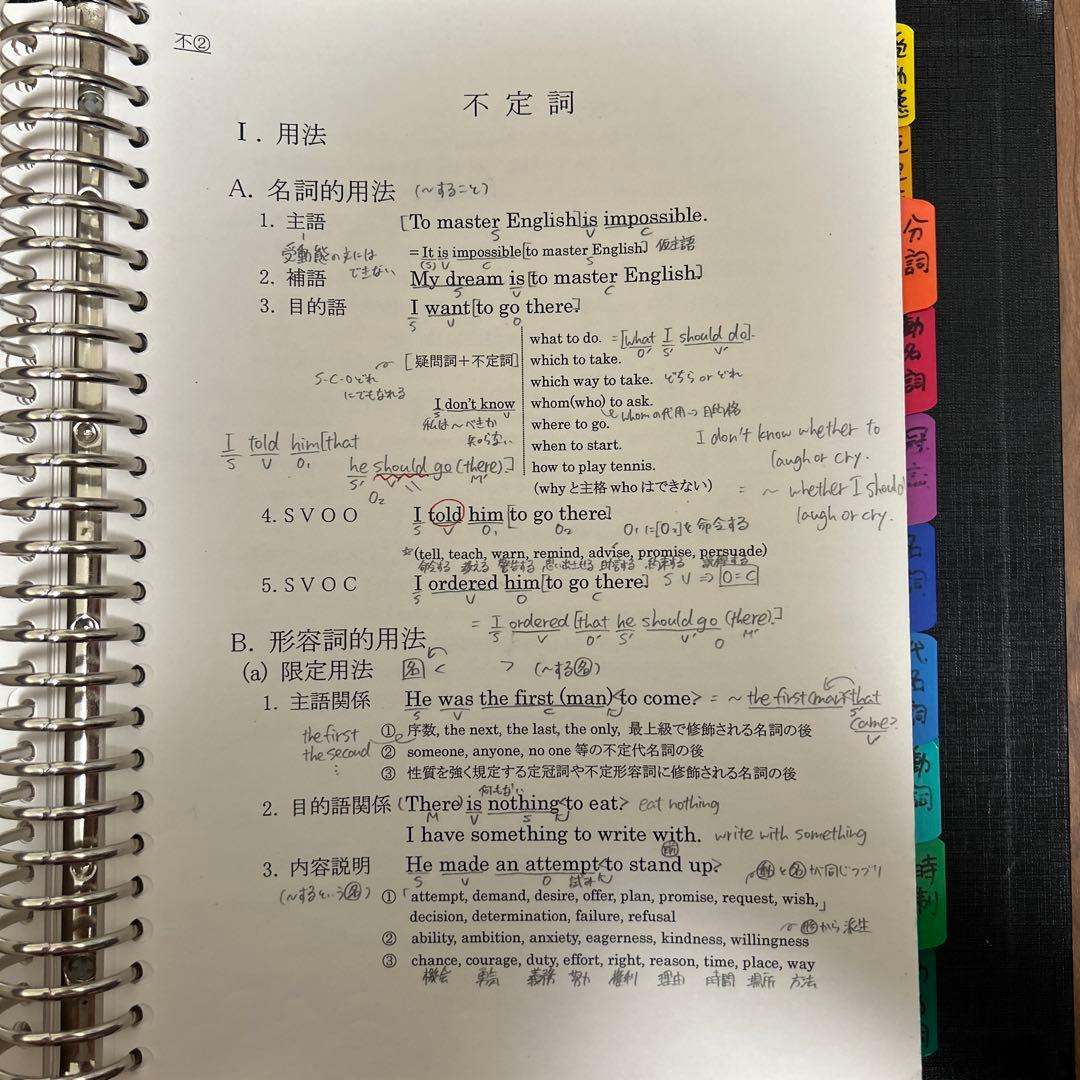 不②
不定詞
Ⅰ. 用法
A. 名詞的用法 (~すること)
1. 主語 [To master English]is impossible.
S V C
受動態の文には
できない
=It is impossible[to master English] 仮主語
(S) V C S
2. 補語 My dream is[to master English]
S V C
3. 目的語 I want[to go there]
S V O
what to do. =[what I should do].
O' S' V'
[疑問詞+不定詞] which to take.
S·C·Oどれ
にでもなれる
which way to take. どちら or どれ
I don't know whom(who) to ask.
S V
whomの代用→目的格
私は~べきか
知らない
where to go.
when to start.
how to play tennis.
(whyと主格whoはできない)
I don't know whether to
laugh or cry.
= ~ whether I should
laugh or cry.
I told him[that
S V O₁
he should go (there).]
S' V' M'
O₂
4. SVOO I told him [to go there]
S V O₁ O₂
O₁に[O₂]を命令する
☆(tell, teach, warn, remind, advise, promise, persuade)
命令する 教える 警告する 思い出させる 助言する 約束する 説得する
5. SVOC I ordered him[to go there] S V ⇒ O=C
S V O C
= I ordered [that he should go (there).]
S V O' S' V' M'
O
B. 形容詞的用法
(a) 限定用法 名< > (~する名)
1. 主語関係 He was the first (man)<to come> = ~ the first (man)<that
S V C
S'
came>
V
the first
the second
⋮
① 序数, the next, the last, the only, 最上級で修飾される名詞の後
② someone, anyone, no one 等の不定代名詞の後
③ 性質を強く規定する定冠詞や不定形容詞に修飾される名詞の後
何もない
2. 目的語関係 (There) is nothing<to eat> eat nothing
M V S
I have something to write with. write with something
前
3. 内容説明 He made an attempt<to stand up>
S V O 試み
(~するという名)
動と名が同じつづり
①「attempt, demand, desire, offer, plan, promise, request, wish,」
decision, determination, failure, refusal
から派生
② ability, ambition, anxiety, eagerness, kindness, willingness
③ chance, courage, duty, effort, right, reason, time, place, way
機会 勇気 義務 努力 権利 理由 時間 場所 方法
受動態
分詞
動名詞
冠詞
名詞
代名詞
動詞
時制